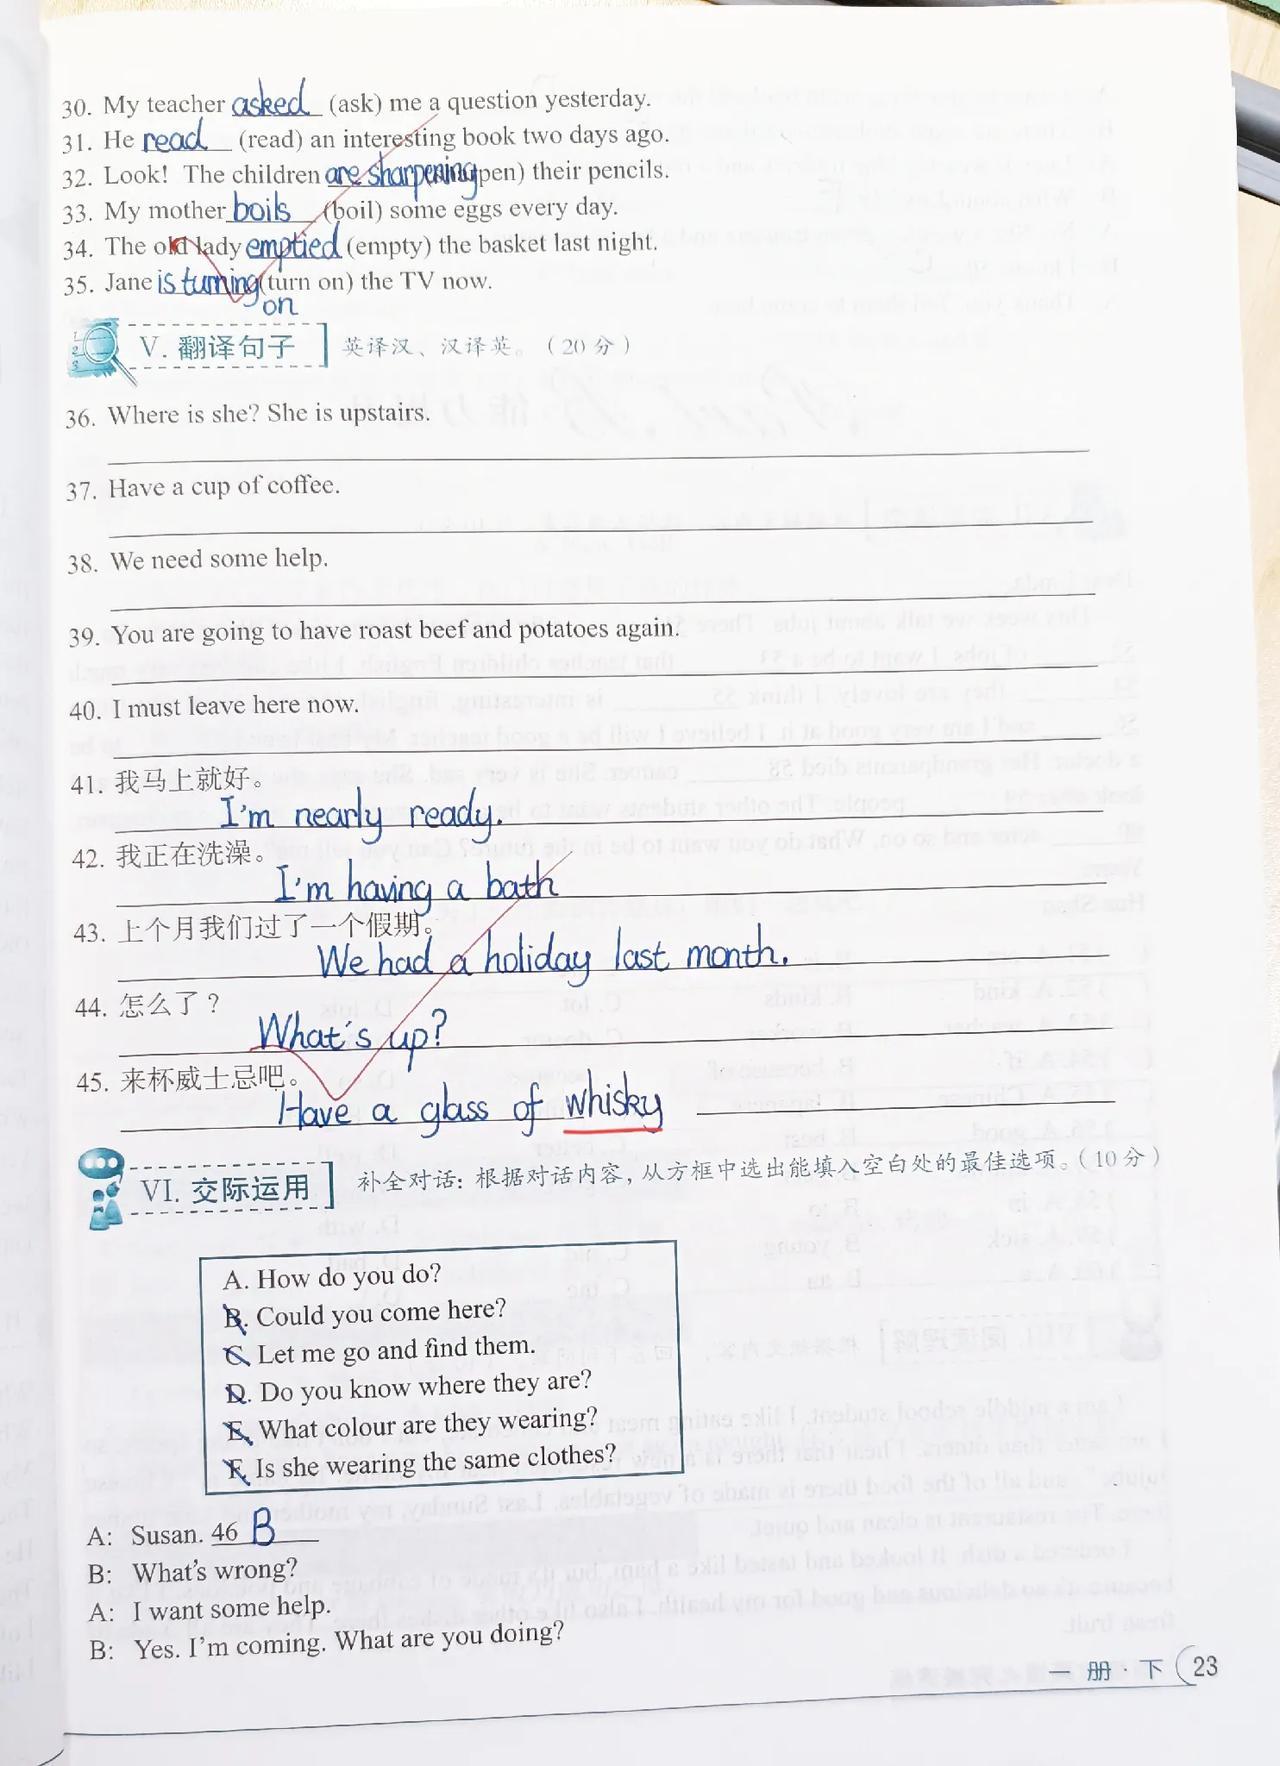 30. My teacher asked (ask) me a question yesterday.
31. He read (read) an interesting book two days ago.
32. Look! The children are sharpening (sharpen) their pencils.
33. My mother boils (boil) some eggs every day.
34. The old lady emptied (empty) the basket last night.
35. Jane is turning (turn on) the TV now.
on
V. 翻译句子 英译汉、汉译英。（20分）
36. Where is she? She is upstairs.
37. Have a cup of coffee.
38. We need some help.
39. You are going to have roast beef and potatoes again.
40. I must leave here now.
41. 我马上就好。
I'm nearly ready.
42. 我正在洗澡。
I'm having a bath
43. 上个月我们过了一个假期。
We had a holiday last month.
44. 怎么了？
What's up?
45. 来杯威士忌吧。
Have a glass of whisky
VI. 交际运用 补全对话：根据对话内容，从方框中选出能填入空白处的最佳选项。（10分）
A. How do you do?
B. Could you come here?
C. Let me go and find them.
D. Do you know where they are?
E. What colour are they wearing?
F. Is she wearing the same clothes?
A: Susan. 46 B
B: What's wrong?
A: I want some help.
B: Yes. I'm coming. What are you doing?
一册·下 23